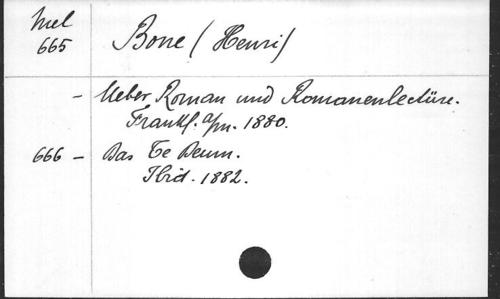 Mel
665 Bone (Henri)
- Ueber Roman und Romanenlectüre.
Frankf. a/m. 1880.
666 - Das Te Deum.
Ibid. 1882.